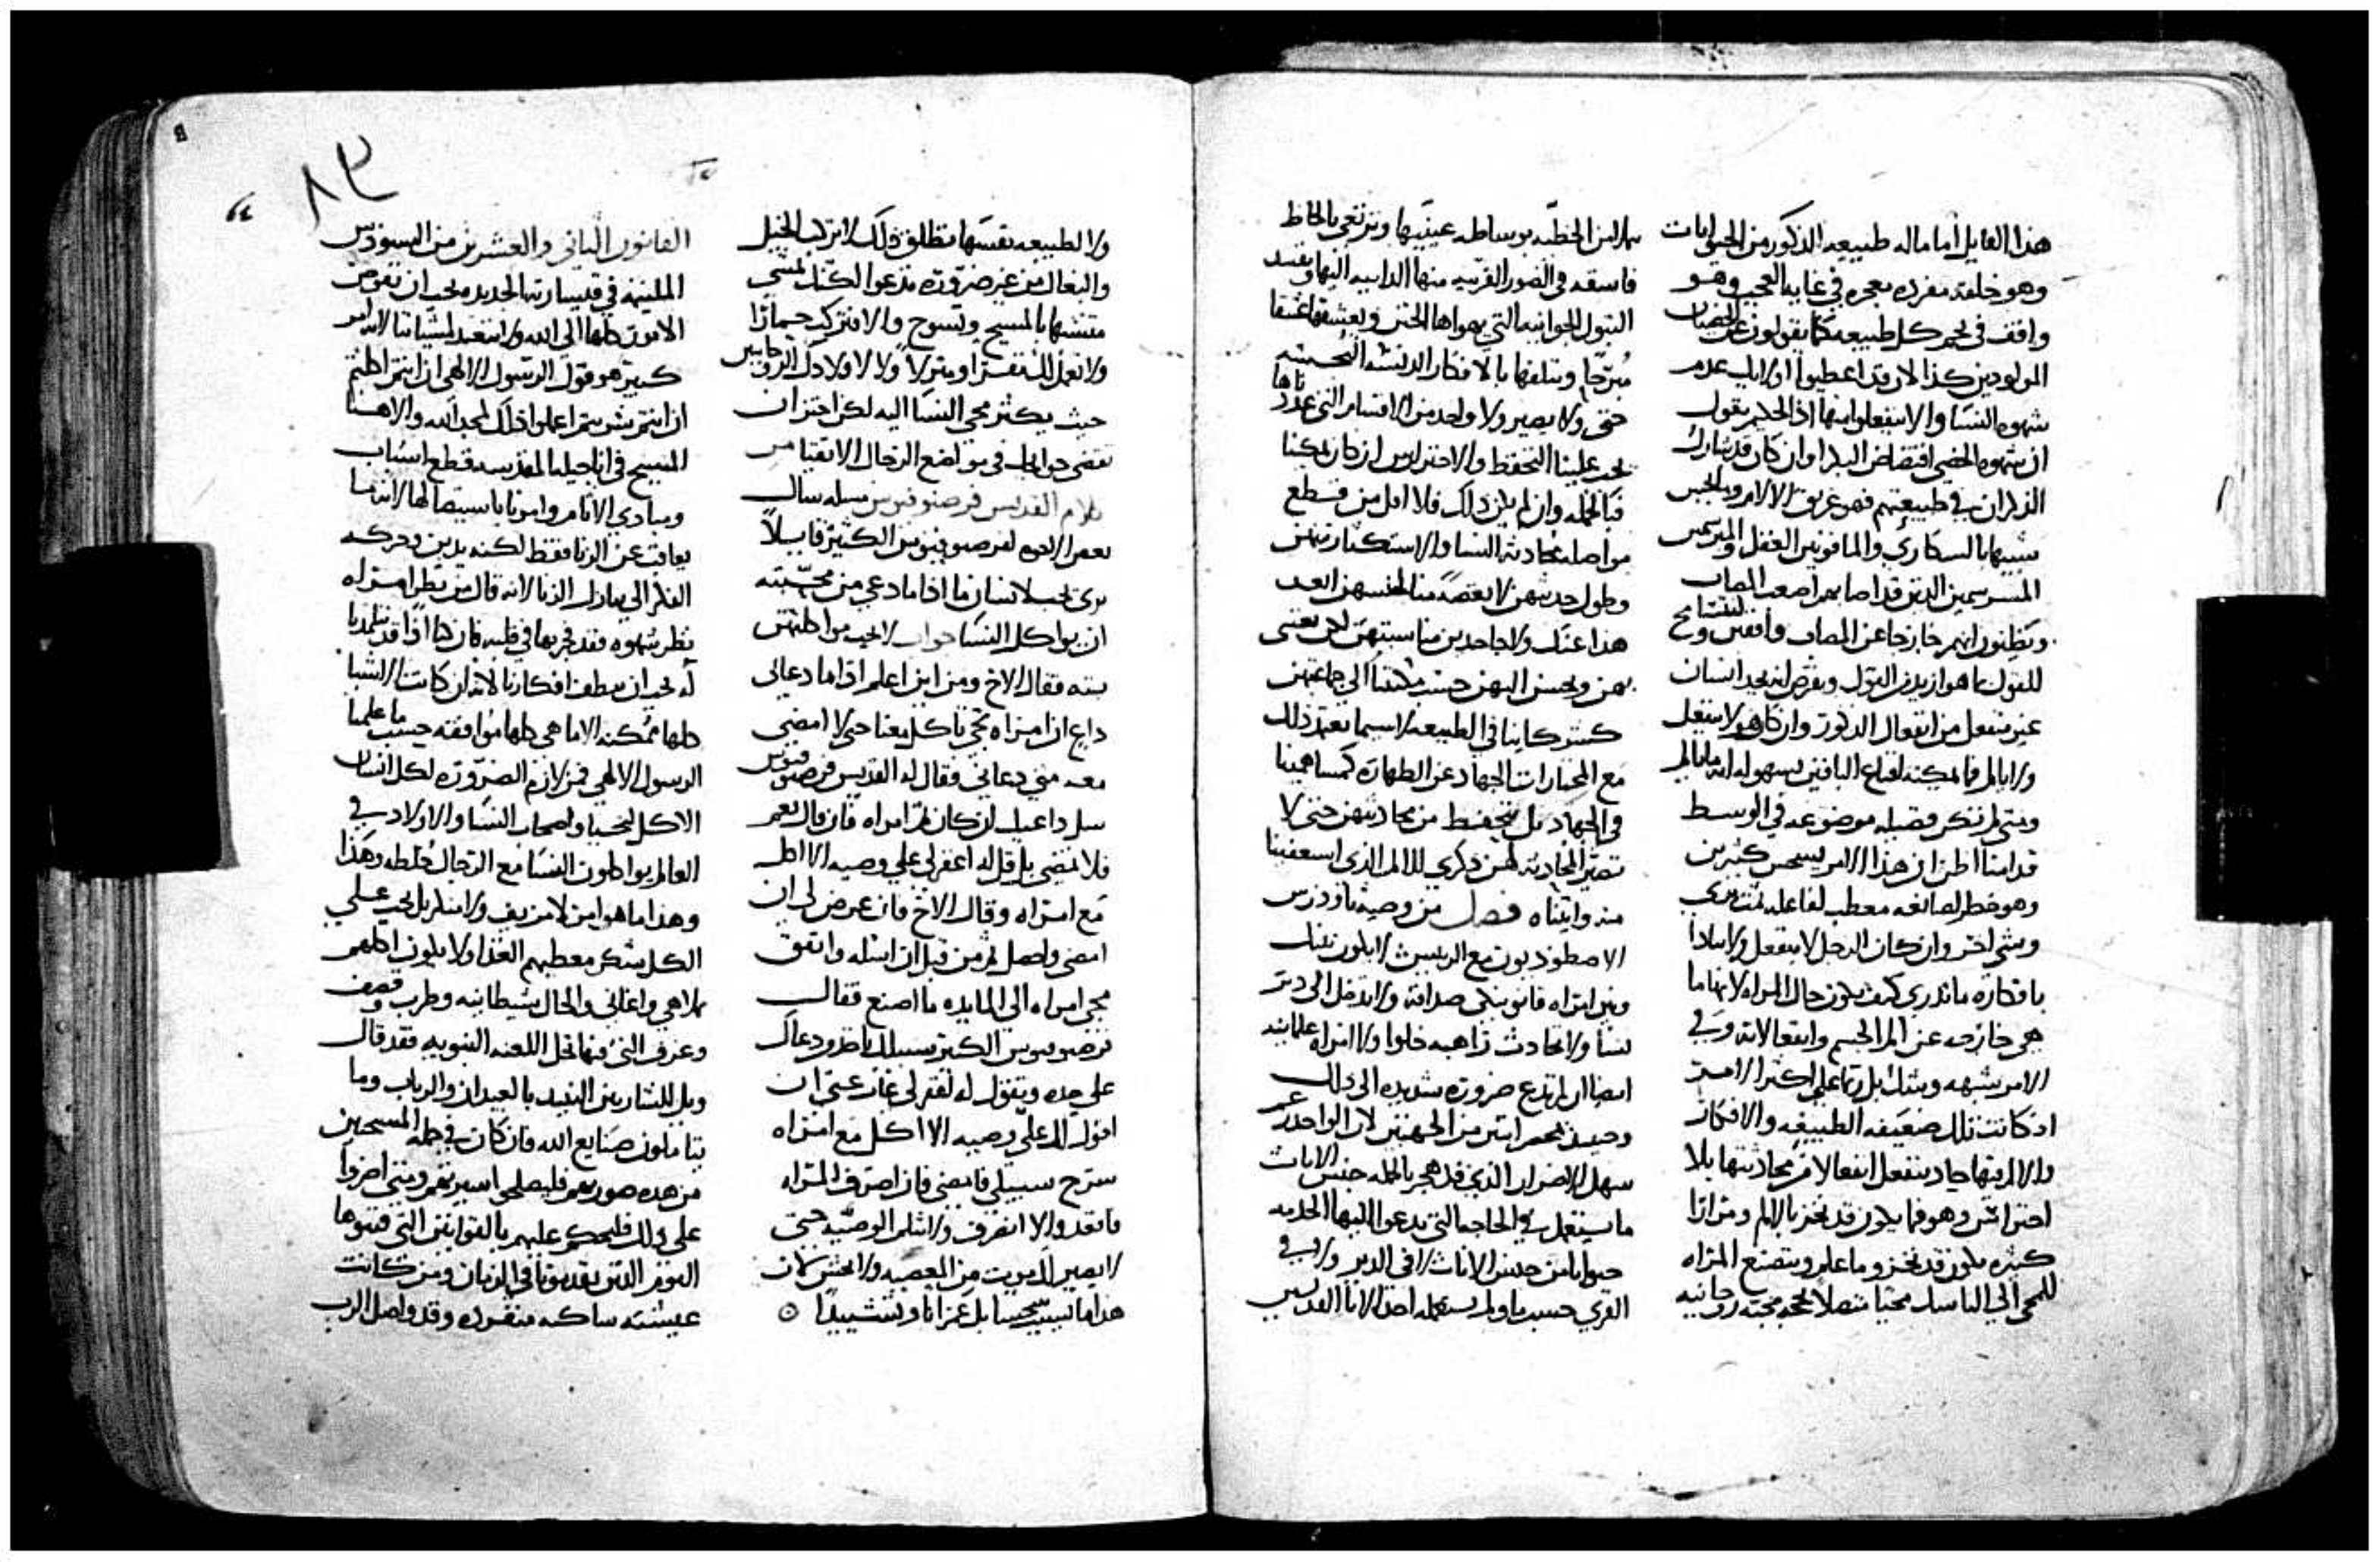 هذا القايل اما ماله طبيعه الذكور من الحيوانات
وهو خلقه مفرده معجزه في غايه العجب وهو
واقف في لجم كل طبيعه كما يقولون عن الخصيان
المولودين كذا لان قد اعطيوا اوليك عدم
شهوه النسا والا ينفعلوا منها اذ الحكيم يقول
ان شهوه الخصي افتضاض البكر اوان كان قد شارك
الذكران في طبيعتهم فهو غريق الالام والجبس
شبيها بالسكارى والمافونين العقل والمبرسمين
المبرسمين الذين قد اصابهم اصعب المصاب
ويظنون انهم خارجا عن المصاب وافقين ولنتسامح
للقول ما هو ازيد من القول ونفرض انه يجد انسان
غير منفعل من انفعال الذكور وان كان هو لا ينفعل
ولا يالم فما يمكنه اقناع الباقين بسهوله انه ما يالم
ومتى لم تكن فضيله موضوعه في الوسط
قدامنا اظن ان هذا الامر يسجس كثيرين
وهو خطر لصانعه معطب لفاعله
وشي اخر وان كان الرجل لا ينفعل ولا يتاذا
بافكاره ما ندري كيف يكون حال المراه لانها ما
هي خارجه عن الم الجسم وانفعالاته وفي
الامر شبهه وشك بل ربما على اكثر الامر
اذ كانت تلك ضعيفه الطبيعه والافكار
والالم فيها حاد ينفعل انفعالا من محادثتها بلا
احتراس وهو فما يكون قد نخز بالالم ومرارا
كثيره يكون قد نخز وما علم ويتصنع المراه
للمجي الى الناسك مجيا متصلا لمحبه روحانيه
الحظيه بوساطه عينيها وترتغي بالحاظ
فاسقه في الصور القريبه منها الدانيه اليها ويفسد
البتول الجوانيه التي يهواها الختن ويعشقها عشقا
مبرحا ويتلفها بالافكار الدنسه النجسه
حتى ولا يصير ولا واحد من الاقسام التي عددناها
يجب علينا التحفظ والاحتراس ان كان يمكنا
فبالجمله وان لم يكن ذلك فلا اقل من قطع
مواصله محادثه النسا والاستكثار منهن
وطول حديثهن لا بغضه منا لجنسهن ابعد
هذا عنك ولا جاحدين مناسبتهن لكن نعتني
بهن ونحسن اليهن حسب مكنتنا الى جماعتهن
كشركاينا في الطبيعه لاسيما نعتمد ذلك
مع المختارات الجهاد عن الطهاره كمساهمينا
في الجهاد بل نتحفظ من محادثتهن حتى لا
تصير المحادثه لهن ذكرى للالم الذي استعفينا
منه وابيناه فصل من وصيه تاودرس
الاصطوديون مع الرييس لا يكون بينك
وبين امراه قانونكي صداقه ولا تدخل الى دير
نسا ولا تحادث راهبه خلوا ولا امراه علمانيه
ايضا ان لم تدع ضروره شديده الى ذلك
وحينيذ بمحضر اثنين من الجهتين لان الواحد
سهل الاضرار الذي قد هجر بالجمله جنس الاناث
ما يستعمل في الحاجه التي تدعوا اليها الخدمه
حيوانا من جنس الاناث لا في الدير ولا في
القرى حسب ما ولم يستعمله احد الابا القديسين
ولا الطبيعه نفسها تطلق ذلك لا تركب الخيل
والبغال من غير ضروره تدعوا لكنك تمشي
متشبها بالمسيح وتسوح والا فتركب حمارا
حيث يكثر مجي النسا اليه لكن احتز ان
تقضي حوايجك في مواضع الرجال الاتقيا من
كلام القديس فرصنوفيوس مساله سال
بعض الاخوه لفرصنوفيوس الكبير قايلا
ترى يجب لانسان ما اذا ما دعي من محبيه
ان يواكل النسا جواب لا يجب مواكلتهن
بته فقال الاخ ومن اين اعلم اذا ما دعاني
داع ان امراه تجي تاكل معنا حتى لا امضي
معه متى دعاني فقال له القديس فرصنوفيوس
سل داعيك ان كان ثم امراه فان قال نعم
فلا تمضي بل قل له اغفر لي علي وصيه الا اكل
مع امراه وقال الاخ فان عرض لي ان
امضي واحصل ثم من قبل ان اسله واتفق
مجي امراه الى المايده ما اصنع فقال
فرصنوفيوس الكبير سبيلك تاخذ ودعاك
على حده وتقول له تغفر لي غاب عني ان
اقول لك علي وصيه الا اكل مع امراه
سرح سبيلي فامضي فان اصرف المراه
فاقعد والا انصرف ولا تثلم الوصيه حتى
لا يصير لك موت من المعصيه ولا تخش لان
هذا ما يسبب سجسا بل عزا ناد وتشييدا ⊙
٨٣
القانون الثاني والعشرين من السينودس
الملتيمه في قيسارته الجديده يجب ان نفوض
الامور كلها الى الله ولا نتعبد لمشياتنا لانه امر
كبير هو قول الرسول الالهي ان انتم اكلتم
ان انتم شربتم اعملوا ذلك لمجد الله والاهنا
المسيح في اناجيله المقدسه قطع اسباب
ومبادي الاثام وامرنا باستيصالها لانه ما
يعاقب عن الزنا فقط لكنه يدين وحركه
الفكر الى مبادره الزنا لانه قال من نظر امراه
نظر شهوه فقد فجر بها في قلبه فان هذا اذا قد علمنا
انه يجب ان ننظف افكارنا لانه ان كانت الاشيا
كلها ممكنه الا ما هي كلها موافقه حسب ما علمنا
الرسول الالهي فمن لازم الضروره لكل انسان
الاكل ليحيا واصحاب النسا والاولاد في
العالم يواكلون النسا مع الرجال خلطه وهذا
وهذا ما هو امن لا مزيف ولا منكر بل يجب على
الكل شكر معطيهم الغذا ولا يكون اكلهم
بملاهي واغاني والحال شيطانيه وطرب وقصف
وعزف التي فيها تحل اللعنه النبويه فقد قال
ويل للشاربين النبيد بالعيدان والرباب وما
يتاملون صنايع الله فان كان في جمله المسيحيين
من هذه صورتهم فليصلحوا سيرتهم ومتى اصروا
على ذلك فليحكم عليهم بالقوانين التي قننوها
القوم الذين تقدمونا في الزمان ومن كانت
عيشته ساكنه منفرده وقد واصل الرب